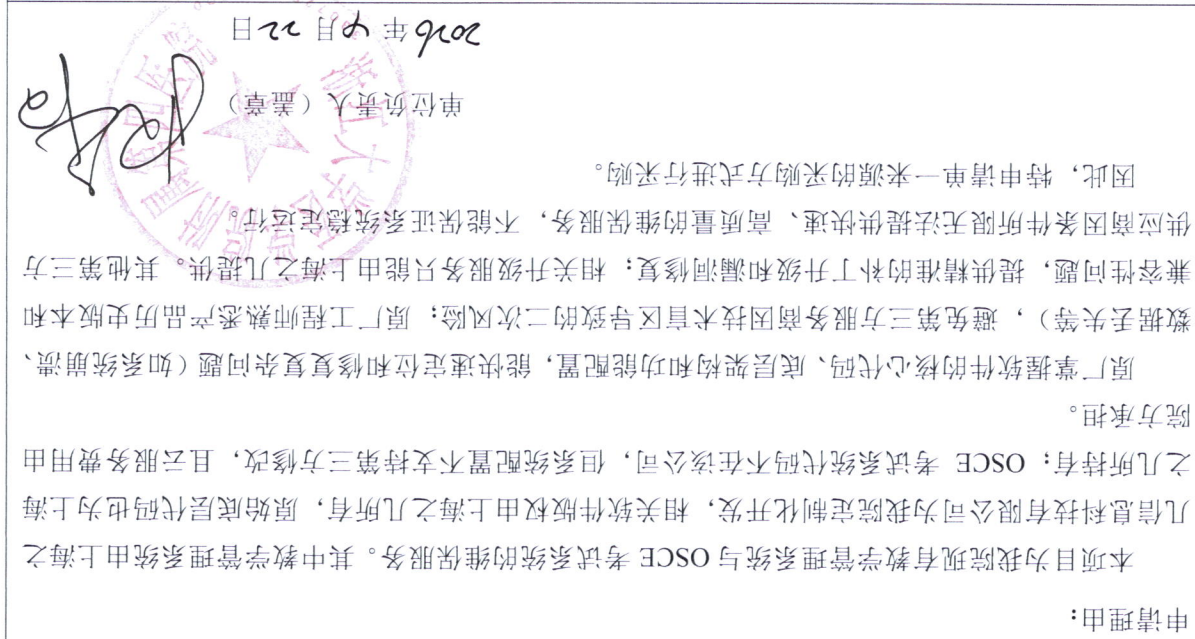 申请理由：
本项目为我院现有教学管理系统与 OSCE 考试系统的维保服务。其中教学管理系统由上海之
几信息科技有限公司为我院定制化开发，相关软件版权由上海之几所有，原始底层代码也为上海
之几所持有；OSCE 考试系统代码不在该公司，但系统配置不支持第三方修改，且云服务费用由
院方承担。
原厂掌握软件的核心代码、底层架构和功能配置，能快速定位和修复复杂问题（如系统崩溃、
数据丢失等），避免第三方服务商因技术盲区导致的二次风险；原厂工程师熟悉产品历史版本和
兼容性问题，提供精准的补丁升级和漏洞修复；相关升级服务只能由上海之几提供。其他第三方
供应商因条件所限无法提供快速、高质量的维保服务，不能保证系统稳定运行。
因此，特申请单一来源的采购方式进行采购。
单位负责人（盖章）
2026 年 4 月 22 日